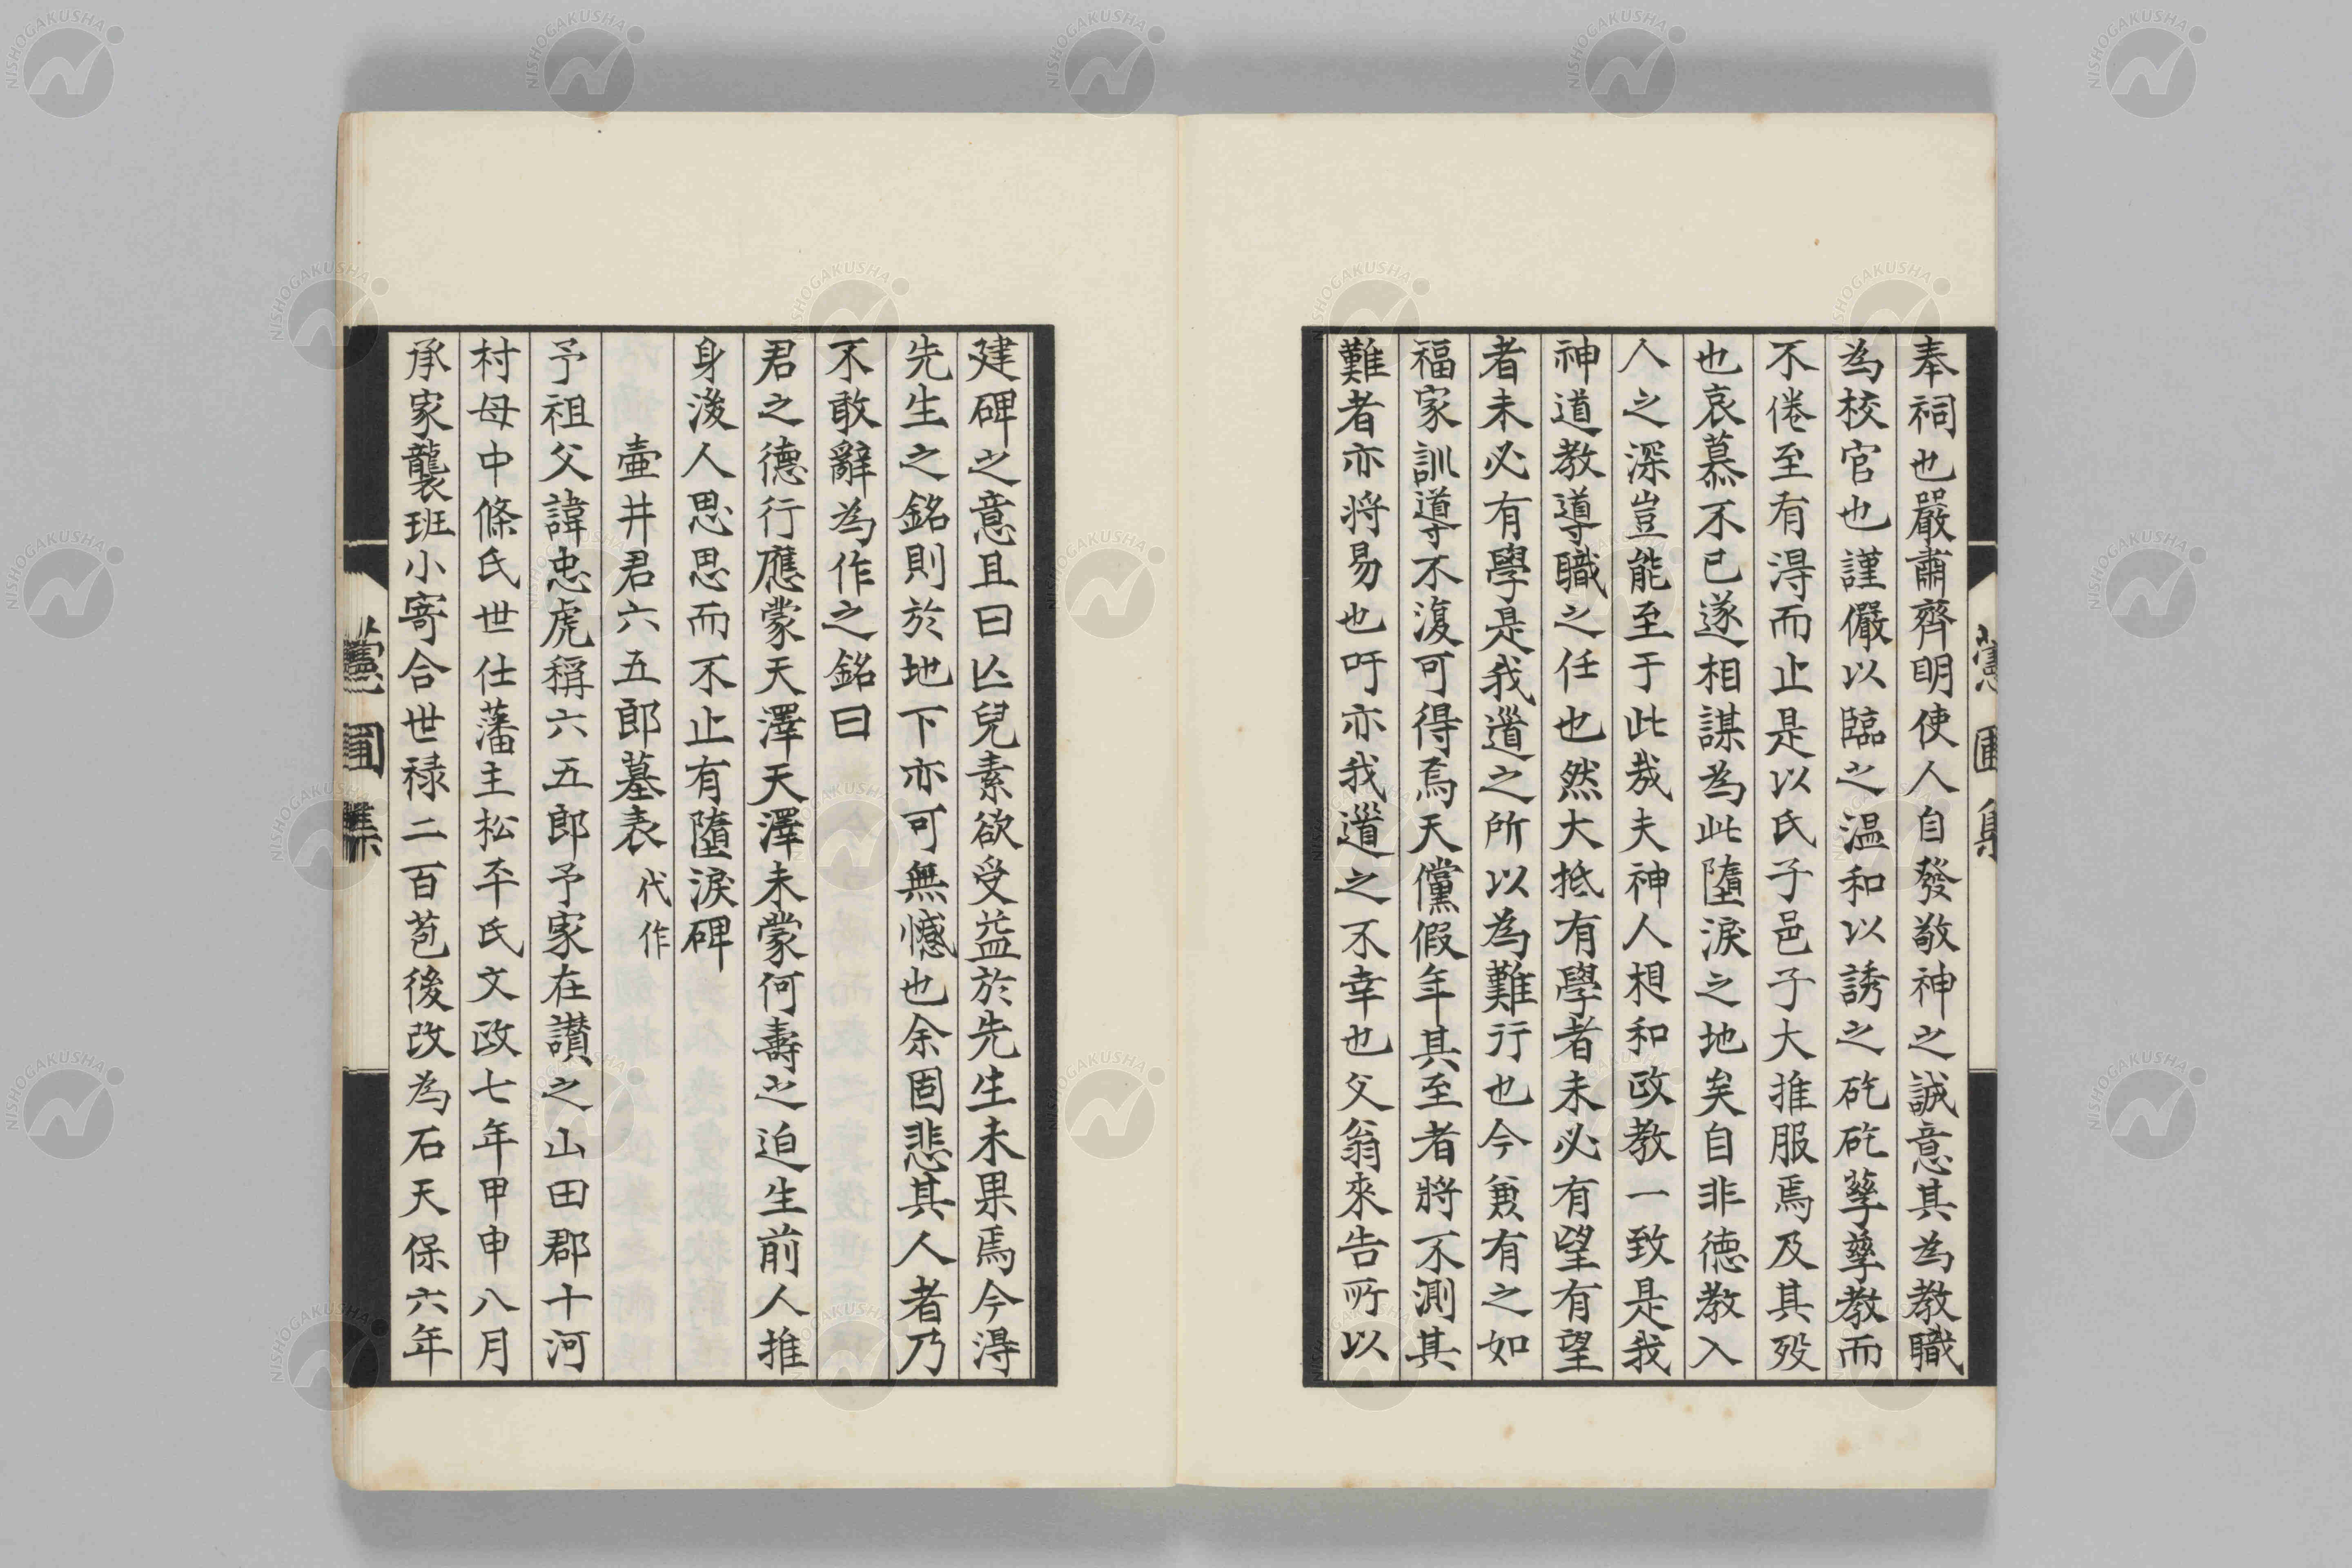 奉祠也嚴肅齊明使人自發敬神之誠意其為教職
為校官也謹儼以臨之温和以誘之矻矻孳孳教而
不倦至有淂而止是以氏子邑子大推服焉及其歿
也哀慕不已遂相謀為此墮淚之地矣自非德教入
人之深豈能至于此哉夫神人相和政教一致是我
神道教導職之任也然大抵有學者未必有望有望
者未必有學是我道之所以為難行也今兼有之如
福家訓導不復可得焉天儻假年其至者將不測其
難者亦將易也吁亦我道之不幸也父翁來告所以
建碑之意且曰亾兒素欲受益於先生未果焉今淂
先生之銘則於地下亦可無憾也余固悲其人者乃
不敢辭為作之銘曰
君之德行應蒙天澤天澤未蒙何壽之迫生前人推
身後人思思而不止有墮淚碑
壷井君六五郎墓表 代作
予祖父諱忠虎稱六五郎予家在讃之山田郡十河
村母中條氏世仕藩主松平氏文政七年甲申八月
承家襲班小寄合世禄二百苞後改為石天保六年
薏圃集
薏圃集
NISHOGAKUSHA